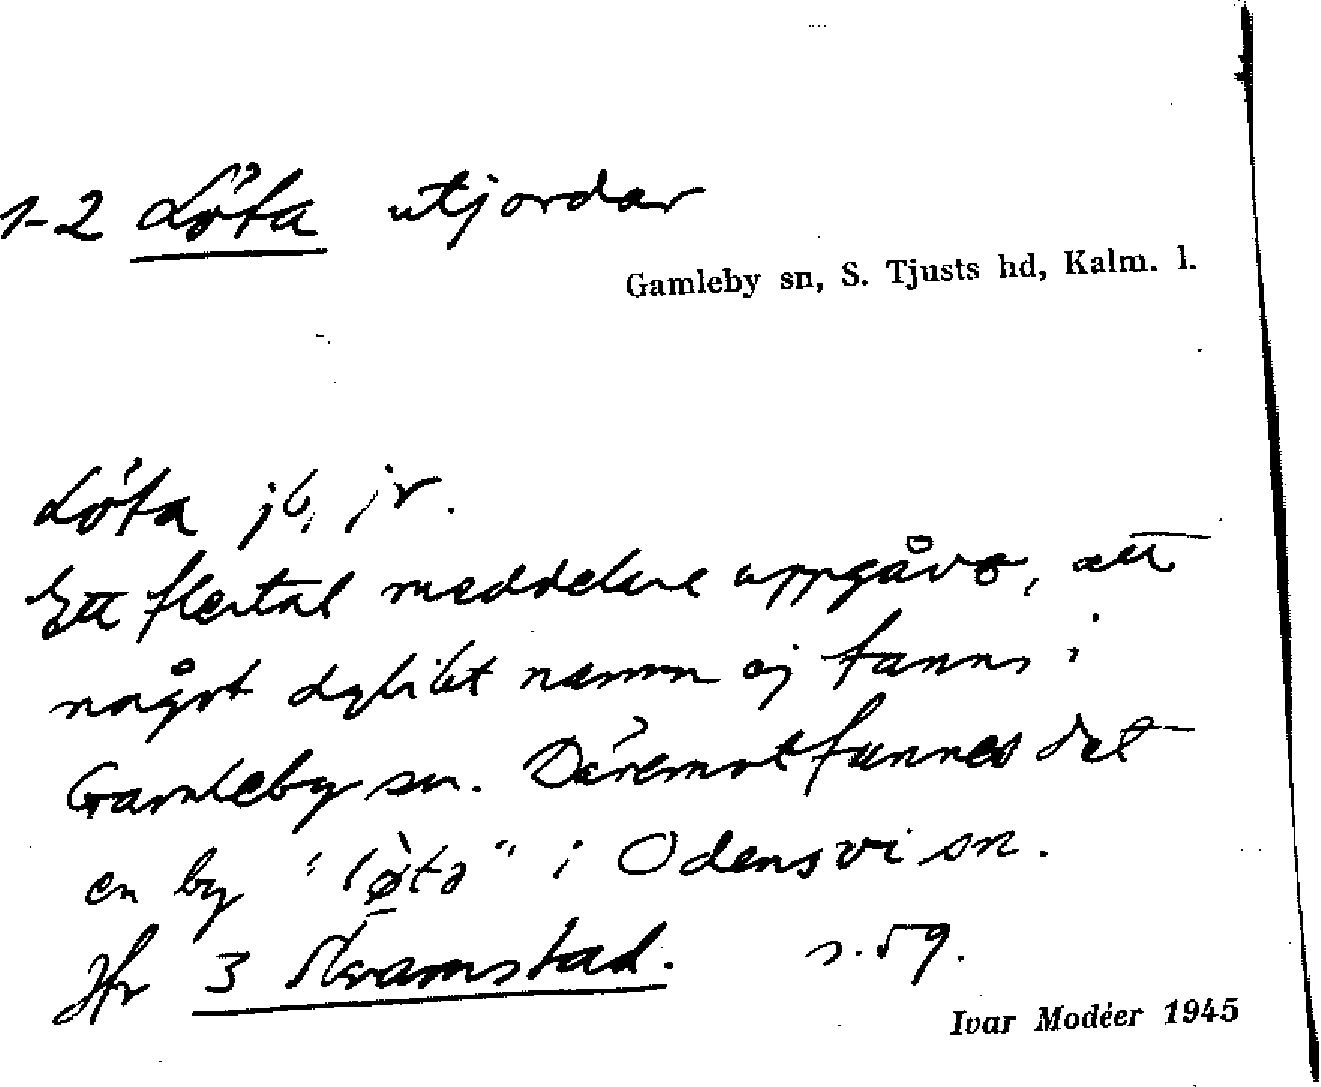 1-2 Löta utjordar
Gamleby sn, S. Tjusts hd, Kalm. l.
Löta jb, jr.
Ett flertal meddelare uppgåvo, att
något dylikt namn ej fanns i
Gamleby sn. Däremot funnes det
en by "lø̀tə" i Odensvi sn.
Jfr 3 Kramstad. s. 59.
Ivar Modéer 1945